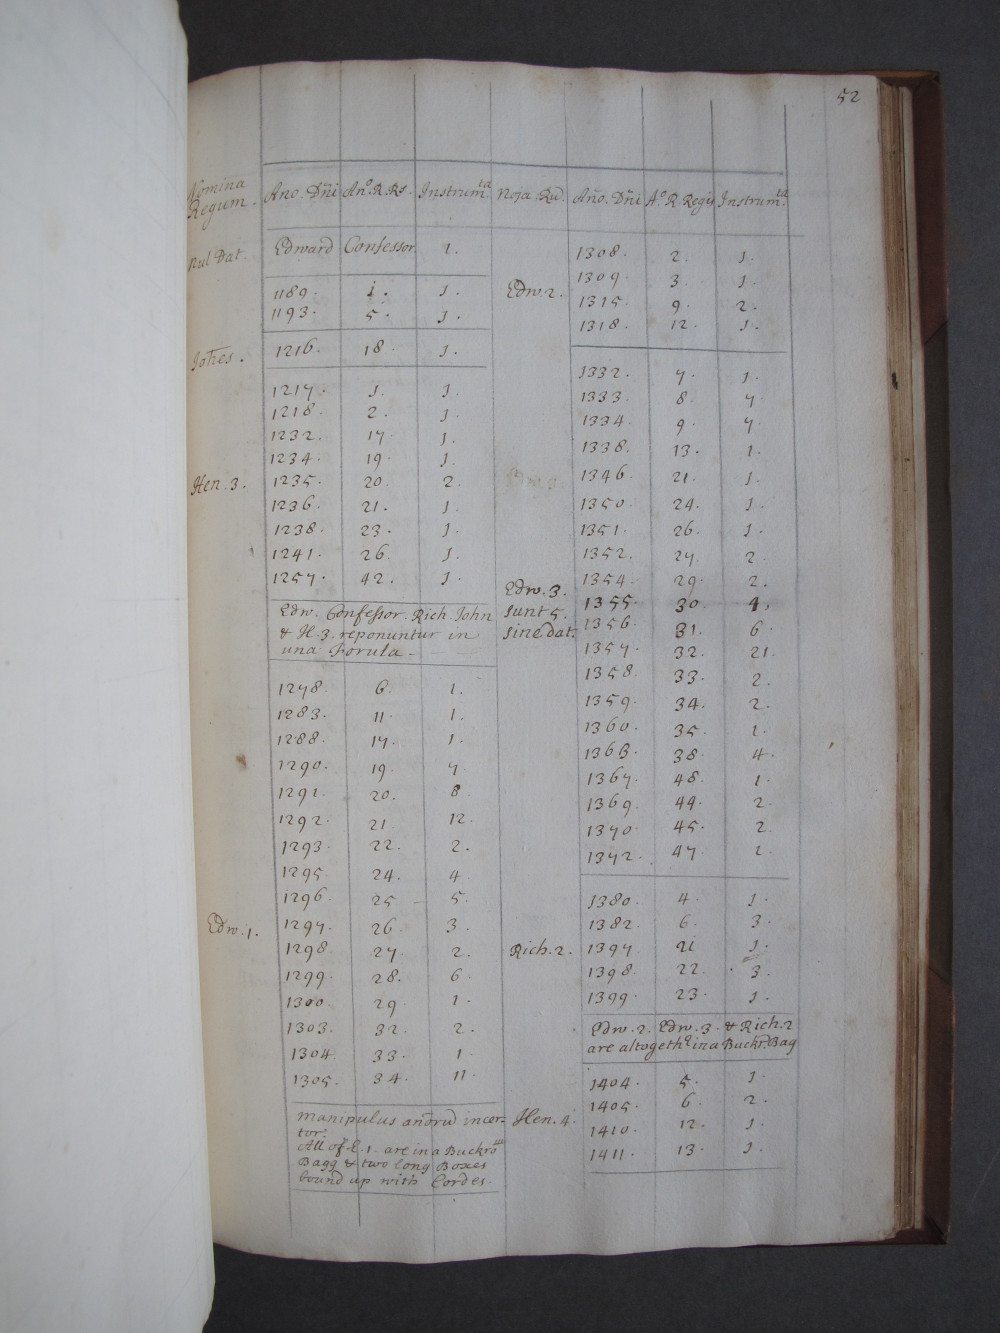 52
Nomina Regum. Ano. Dñi An.º R. Rs. Instrum.ta
Nul Dat. Edward Confessor 1.
1189. i. 1.
1193. 5. 1.
Johes. 1216. 18. 1.
1217. 1. 1.
1218. 2. 1.
1232. 17. 1.
1234. 19. 1.
Hen. 3. 1235. 20. 2.
1236. 21. 1.
1238. 23. 1.
1241. 26. 1.
1257. 42. 1.
Edw. Confessor. Rich. John
& H. 3. reponuntur in
una Forula
1278. 6. 1.
1283. 11. 1.
1288. 17. 1.
1290. 19. 7.
1291. 20. 8.
1292. 21. 12.
1293. 22. 2.
1295. 24. 4
1296. 25 5.
Edw. 1. 1297. 26. 3.
1298 27. 2.
1299. 28. 6.
1300. 29. 1.
1303. 32. 2.
1304 33. 1.
1305. 34. 11.
Manipulus añorũ incer-
tor.
All of E. 1. are in a Buckrõ
Bagg & two long Boxes
bound up with Cordes.
Noĩa Rũ. Año. Dñi A.º R. Regis Instrum.ta
1308. 2. 1.
Edw. 2. 1309. 3. 1.
1315. 9. 2.
1318. 12. 1.
1332. 7. 1.
1333. 8. 7
1334. 9. 7.
1338. 13. 1.
1346. 21. 1.
1350. 24. 1.
1351. 26. 1.
1352. 27 2.
Edw. 3. 1354. 29. 2.
sunt 5. 1355. 30. 4.
sine dat. 1356. 31. 6.
1357. 32. 21.
1358. 33. 2.
1359. 34. 2.
1360. 35. 1.
1363. 38. 4.
1367. 48. 1.
1369. 44. 2.
1370. 45. 2.
1372. 47. 1.
1380. 4. 1.
1382. 6. 3.
Rich. 2. 1397 21 1.
1398. 22. 3.
1399. 23. 1.
Edw. 2. Edw. 3. & Rich. 2
are altogethr in a Buckr. Bag
1404. 5. 1.
1405. 6. 2.
Hen. 4. 1410. 12. 1.
1411. 13. 1.